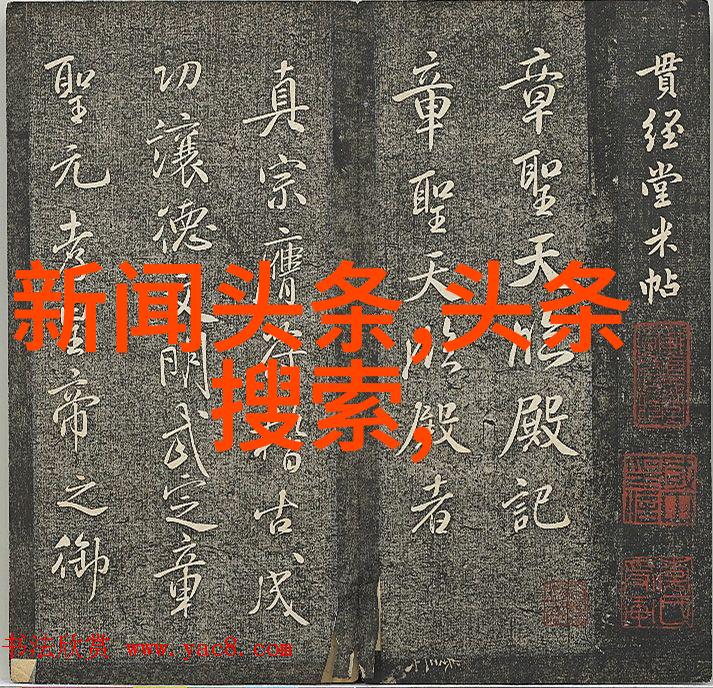 贯经堂米帖
章聖天臨殿記
章聖天臨殿者
真宗膺符稽古成
功讓德文明武定章
聖元孝皇帝之御
新闻头条,头条
搜索,
书法欣赏 www.yac8.com